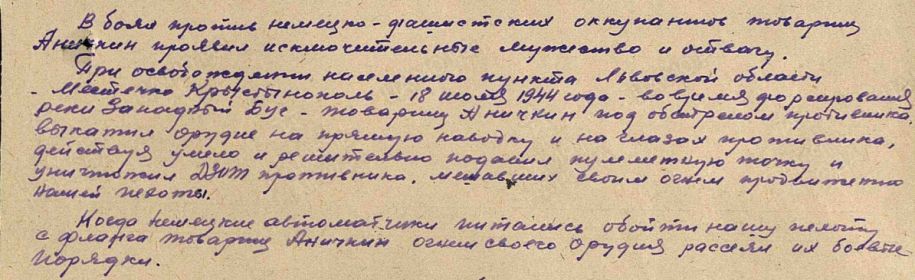 В боях против немецко-фашистских оккупантов товарищ
Аничкин проявил исключительные мужество и отвагу.
При освобождении населенного пункта Львовской области
- Местечко Крыстынополь - 18 июля 1944 года - во время форсирования
реки Западный Буг - товарищ Аничкин под обстрелом противника,
выкатил орудие на прямую наводку и на глазах противника,
действуя умело и решительно подавил пулеметную точку и
уничтожил ДЗОТ противника, мешавших своим огнем продвижению
нашей пехоты.
Когда немецкие автоматчики пытались обойти нашу пехоту
с фланга товарищ Аничкин огнем своего орудия рассеял их боевые
порядки.